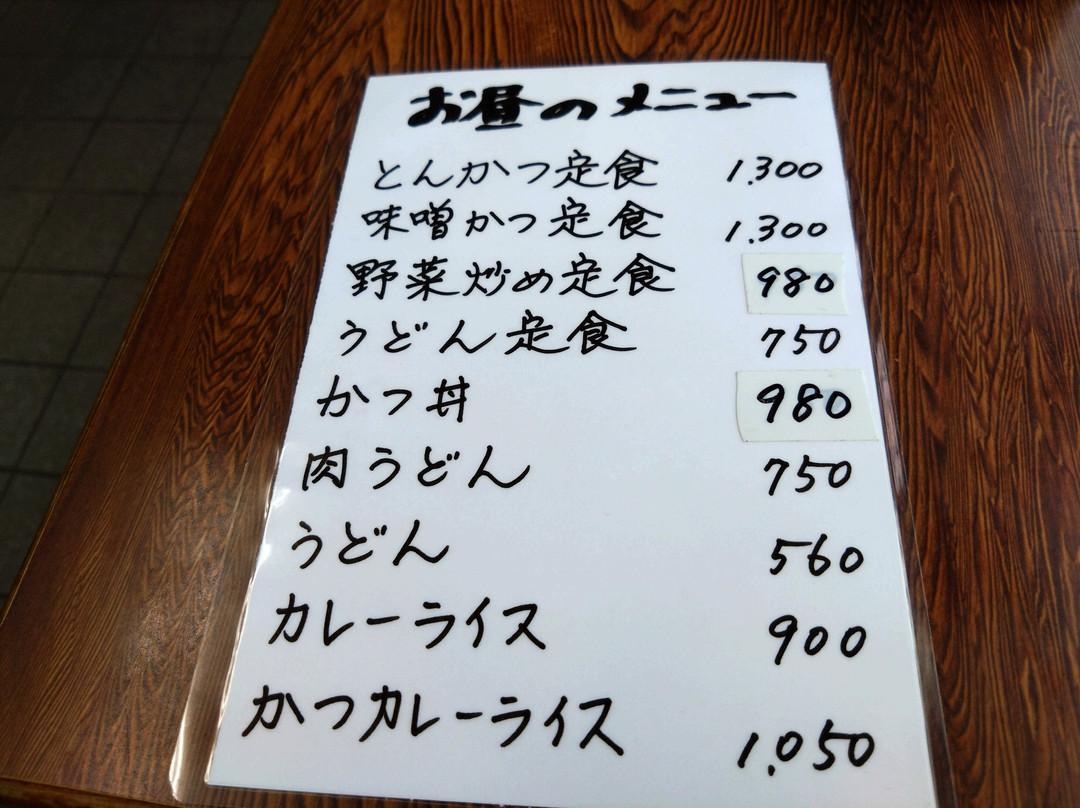 お昼のメニュー
とんかつ定食 1.300
味噌かつ定食 1.300
野菜炒め定食 980
うどん定食 750
かつ丼 980
肉うどん 750
うどん 560
カレーライス 900
かつカレーライス 1.050